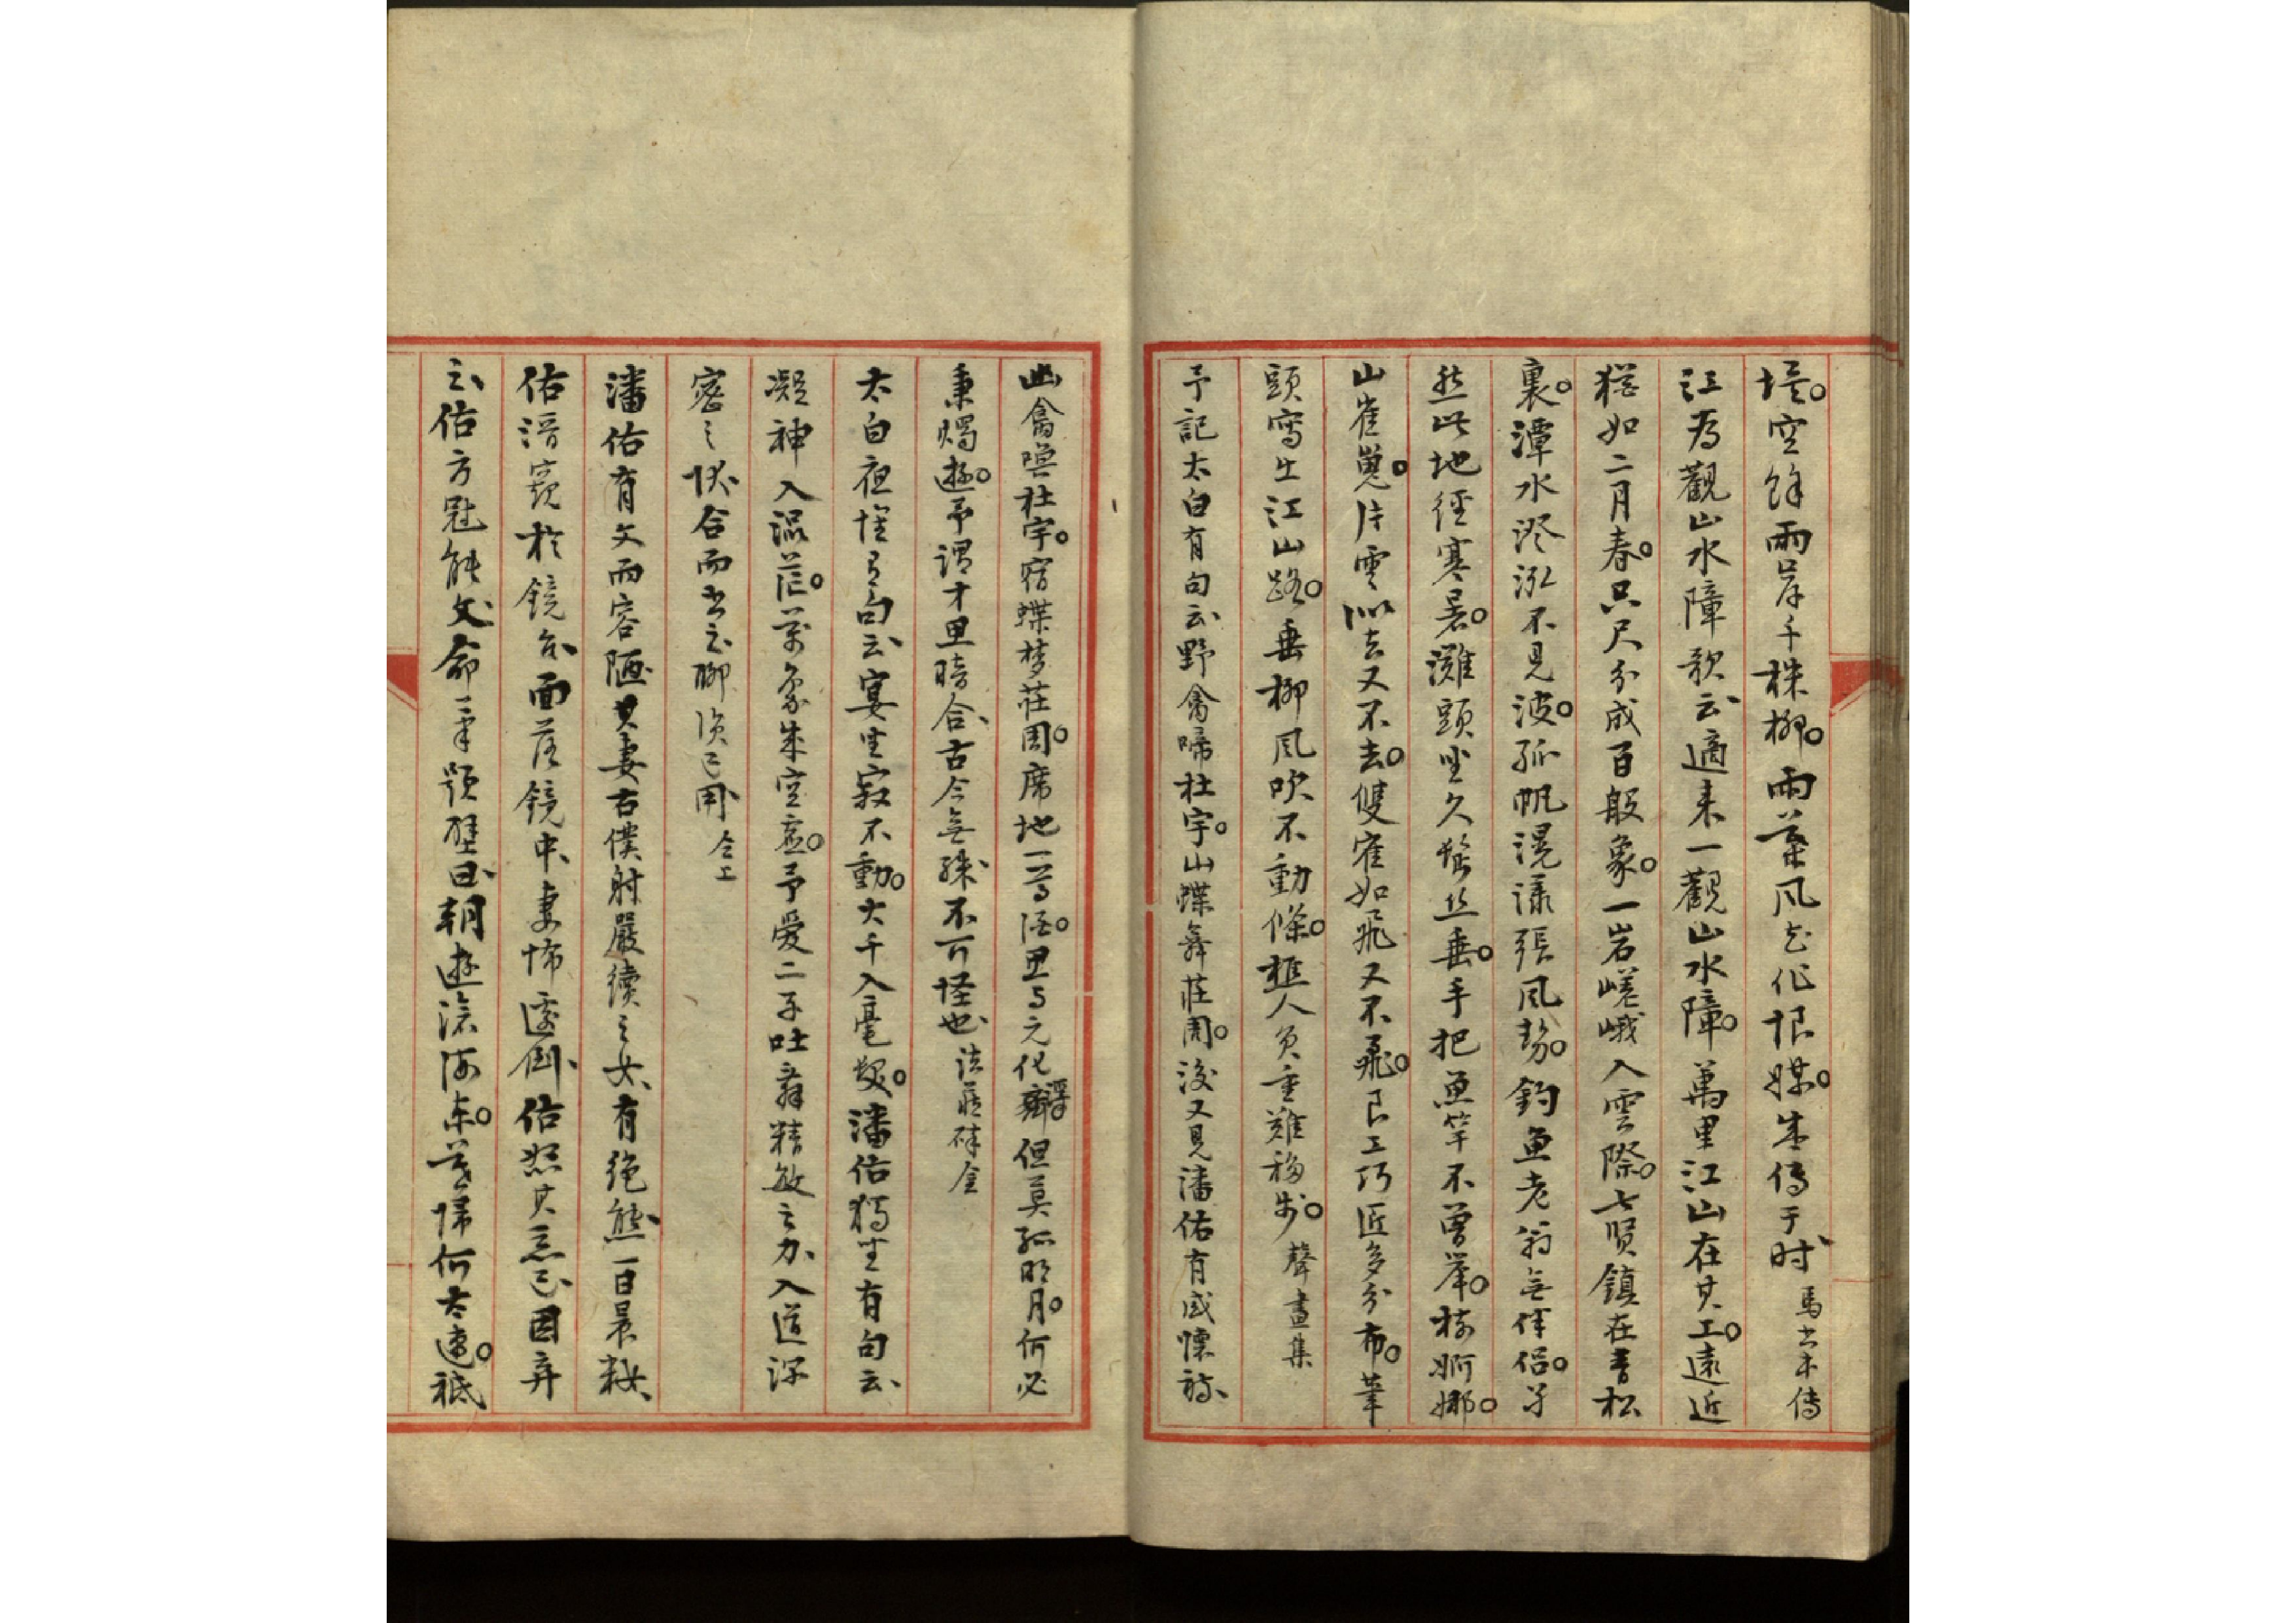 堤空餘兩岸千株柳雨葉風花作恨媒生傳于時 馬書本傳
江爲觀山水障歌云適來一觀山水障萬里江山在其工遠近
猶如二月春只尺分成百般象一岩嵯峨入雲際七賢鎮在青松
裏潭水澄泓不見波孤帆滉漾張風勢釣魚老翁無伴侶
然此地經寒暑灘頭坐久鬢丝垂手把魚竿不曾舉樹婀娜
山崔嵬片雲似去又不去雙雀如飛又不飛良工巧匠多分布筆
頭寫出江山路垂柳風吹不動條樵人負重難移步 聲畫集
予記太白有句云野禽啼杜宇山蝶舞莊周後又見潘佑有感懷詩
幽禽喚杜宇宿蝶梦莊周席地一尊酒思与元化浮但莫孤明月何必
秉燭遊予謂才思暗合古今無殊不可怪也 詩薮碎金
太白夜懷有句云宴坐寂不動大千入毫髮潘佑獨坐有句云
凝神入混茫萬象生空虛予愛二子吐辭精敏之力入道深
密之状合而書之聊資己用 仝上
潘佑有文而容陋其妻右僕射嚴續之女有絶態一日晨粧
佑潛窺於鏡台面落鏡中妻怖遽倒佑怒其惡己因弃
之佑方冠能文命筆題壁曰朝遊滄海東暮歸何太速祗